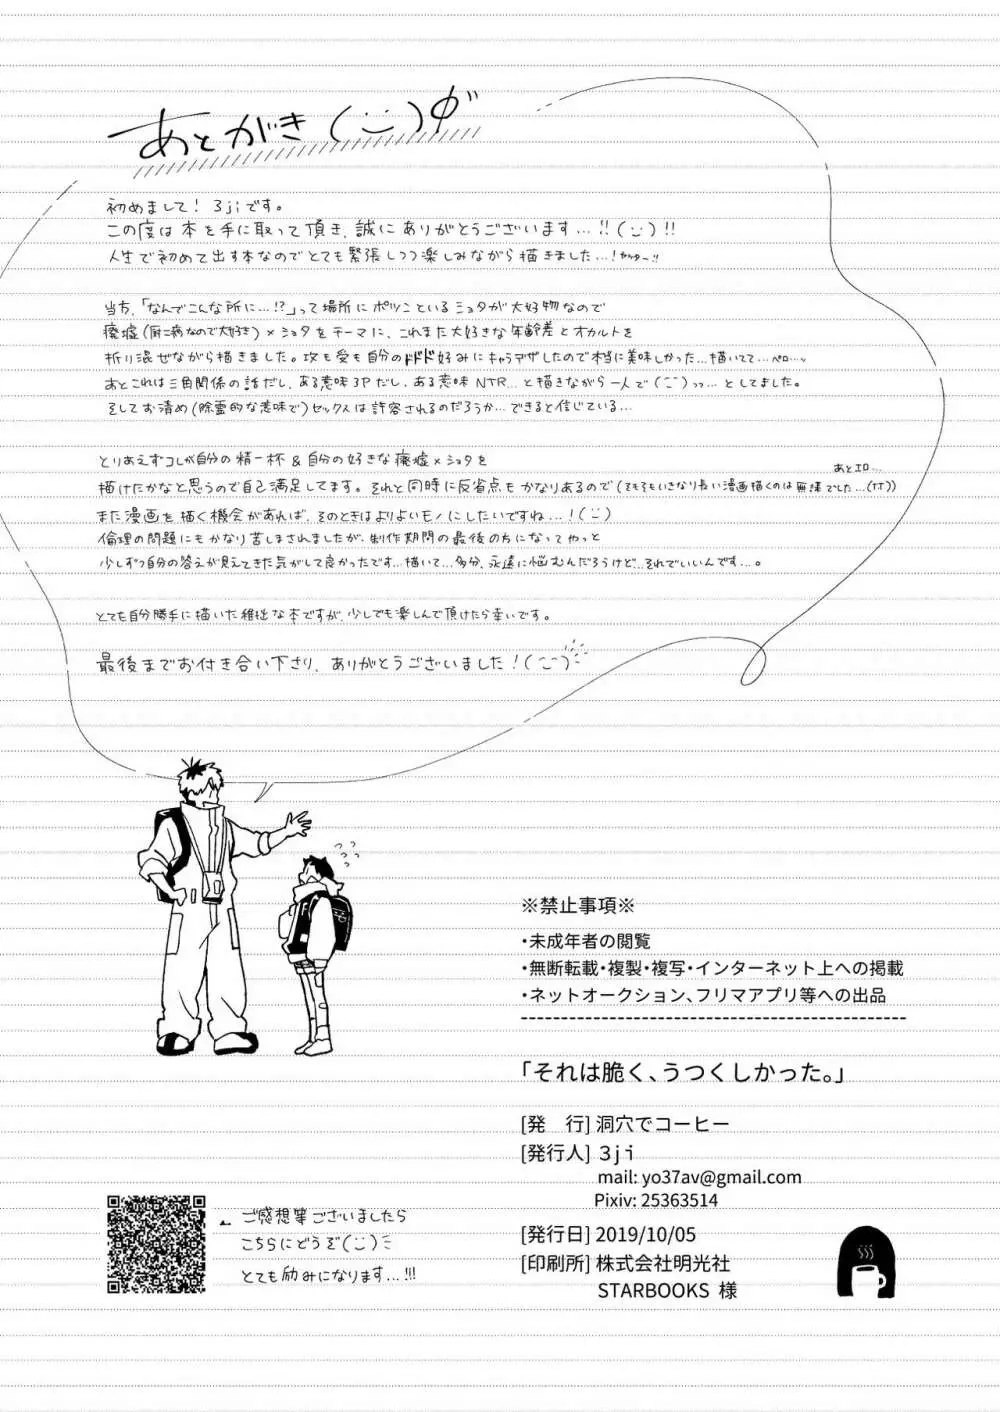 あとがき(:)
初めまして! 3jiです。
この度は本を手に取って頂き、誠にありがとうございます…!!(:)!!
人生で初めて出す本なのでとても緊張しつつ楽しみながら描きました…!ヤッター!!
当方、「なんでこんな所に…!?」って場所にポツンといるショタが大好物なので
廃墟(厨二病なので大好き)×ショタをテーマに、これまた大好きな年齢差とオカルトを
折り混ぜながら描きました。攻も受も自分のドドド好みにキャラデザしたので本当に美味しかった…描いてて…ペロ…ッ
あとこれは三角関係の話だし、ある意味3Pだし、ある意味NTR…と描きながら一人で(:)ッッ…としてました。
そしてお清め(除霊的な意味で)セックスは許容されるのだろうか…できると信じている…
とりあえずコレが自分の精一杯&自分の好きな廃墟×ショタを
あとエロ…
描けたかなと思うので自己満足してます。それと同時に反省点もかなりあるので(そもそもいきなり長い漫画描くのは無謀でした…)
また漫画を描く機会があれば、そのときはよりよいモノにしたいですね…!(:)
倫理の問題にもかなり苦しまされましたが、制作期間の最後の方になってやっと
少しずつ自分の答えが見えてきた気がして良かったです…描いて…多分、永遠に悩むんだろうけど…それでいいんです…。
とても自分勝手に描いた稚拙な本ですが、少しでも楽しんで頂けたら幸いです。
最後までお付き合い下さり、ありがとうございました!(:)
F
※禁止事項※
・未成年者の閲覧
・無断転載・複製・複写・インターネット上への掲載
・ネットオークション、フリマアプリ等への出品
「それは脆く、うつくしかった。」
[発　行] 洞穴でコーヒー
[発行人] 3ji
mail: yo37av@gmail.com
Pixiv: 25363514
[発行日] 2019/10/05
[印刷所] 株式会社明光社
STARBOOKS 様
ご感想等ございましたら
こちらにどうぞ(:)
とても励みになります…!!!